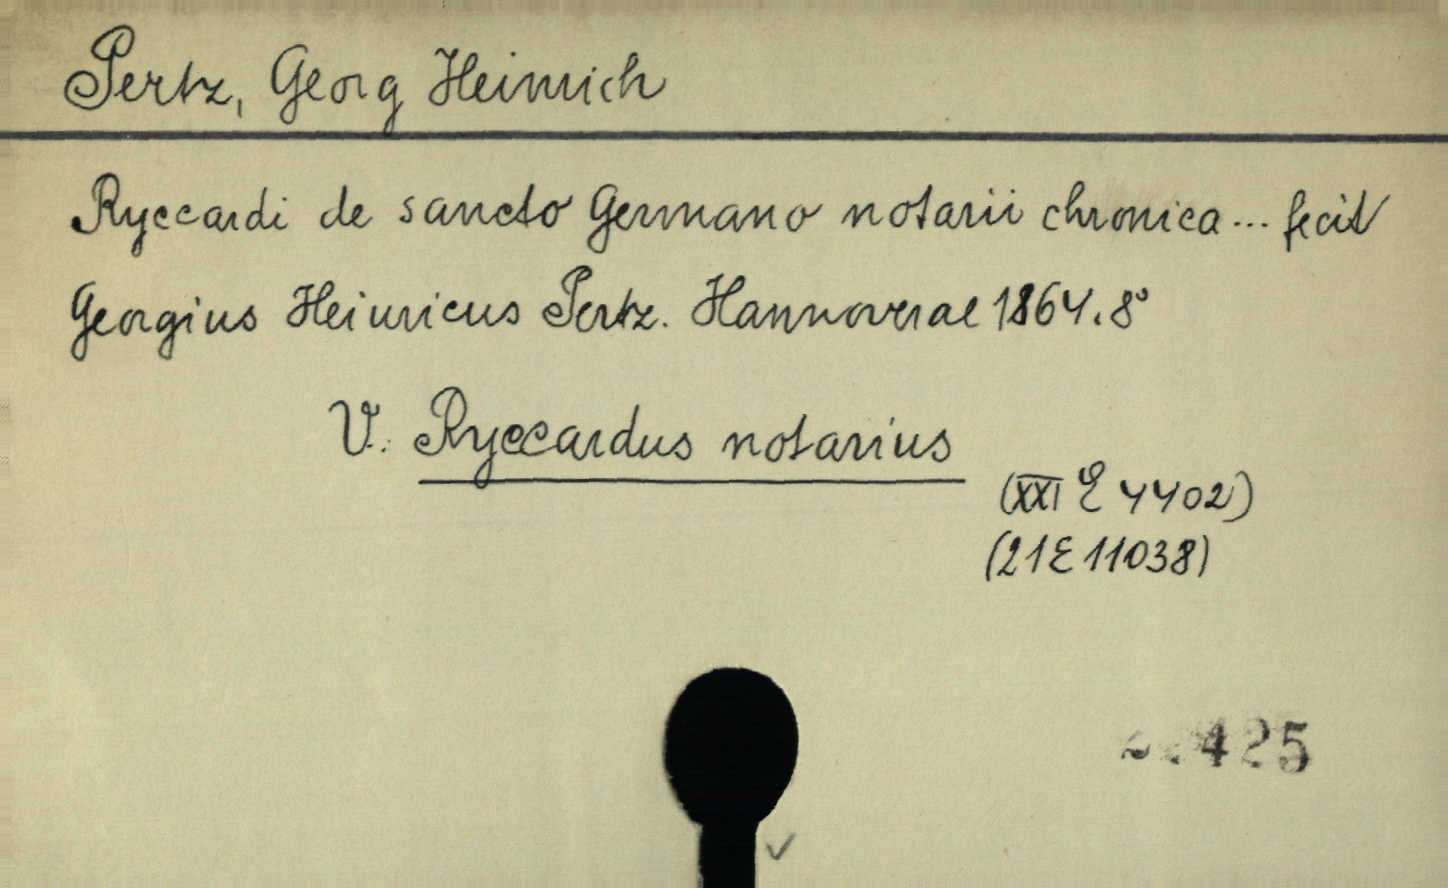 Pertz, Georg Heinrich
Ryccardi de sancto Germano notarii chronica... fecit
Georgius Heinricus Pertz. Hannoverae 1864. 8°
V. Ryccardus notarius
(XXI E 4402)
(21 E 11038)